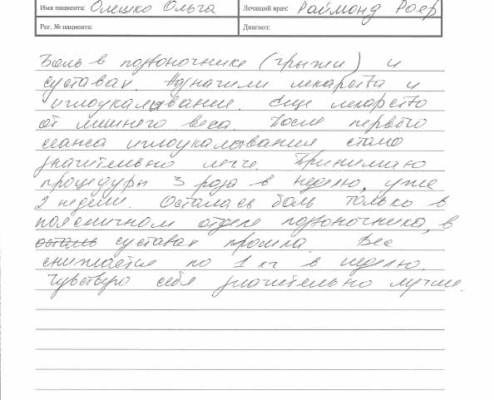 Имя пациента: Олешко Ольга Лечащий врач: Раймонд Роер
Рег. № пациента: Диагноз:
Боль в позвоночнике (грыжи) и
суставах. Назначили лекарства и
иглоукалывание. Еще лекарство
от лишнего веса. После первого
сеанса иглоукалывания стало
значительно легче. Принимаю
процедуры 3 раза в неделю, уже
2 недели. Осталась боль только в
поясничном отделе позвоночника, в
суставах прошла. Вес
снижается по 1 кг в неделю.
Чувствую себя значительно лучше.